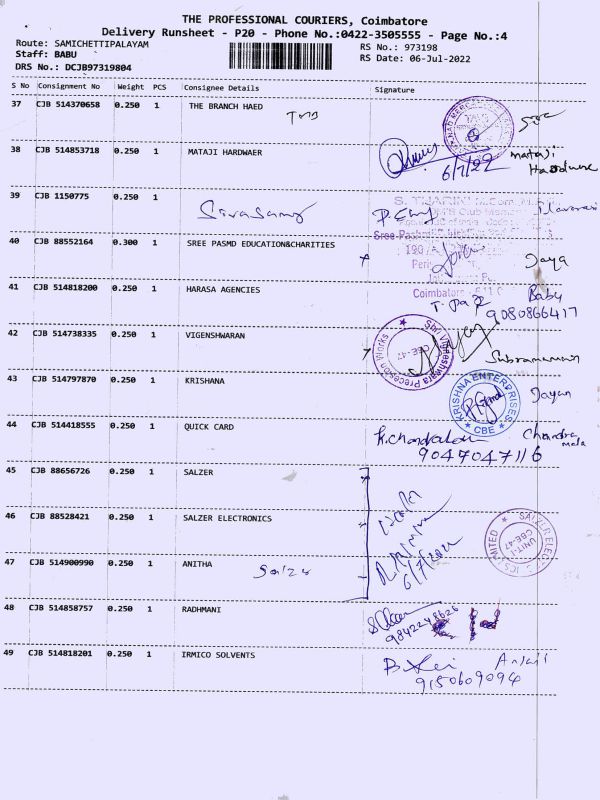 THE PROFESSIONAL COURIERS, Coimbatore
Delivery Runsheet - P20 - Phone No.:0422-3505555 - Page No.:4
Route: SAMICHETTIPALAYAM RS No.: 973198
Staff: BABU RS Date: 06-Jul-2022
DRS No.: DCJB97319804
S No Consignment No Weight PCS Consignee Details Signature
37 CJB 514370658 0.250 1 THE BRANCH HAED
TMB
38 CJB 514853718 0.250 1 MATAJI HARDWAER
6/7/22 mataji
Hardware
39 CJB 1150775 0.250 1
Sivasamy
40 CJB 88552164 0.300 1 SREE PASMD EDUCATION&CHARITIES
Jaya
Coimbatore
41 CJB 514818200 0.250 1 HARASA AGENCIES
Babu
9080866417
42 CJB 514738335 0.250 1 VIGENSHWARAN
Sri Vigneshwara Precision Works
CBE-47
43 CJB 514797870 0.250 1 KRISHANA
KRISHNA ENTERPRISES
CBE
Jayan
44 CJB 514418555 0.250 1 QUICK CARD
K.Chandrakala Chandra
mala
9047047116
45 CJB 88656726 0.250 1 SALZER
46 CJB 88528421 0.250 1 SALZER ELECTRONICS
SALZER ELECTRONICS LIMITED
UNIT-I
CBE-47
47 CJB 514900990 0.250 1 ANITHA
Salzer
6/7/2022
48 CJB 514858757 0.250 1 RADHMANI
9842248626
49 CJB 514818201 0.250 1 IRMICO SOLVENTS
Anjali
9150609094